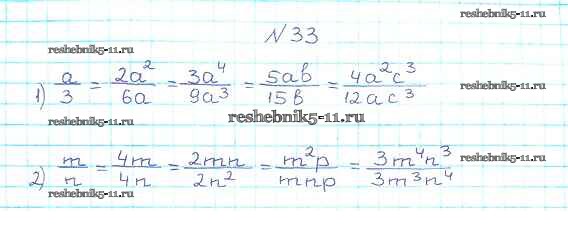 reshebnik5-11.ru
N 33
reshebnik5-11.ru
1) a/3 = 2a²/6a = 3a⁴/9a³ = 5ab/15b = 4a²c³/12ac³
reshebnik5-11.ru
reshebnik5-11.ru
2) m/n = 4m/4n = 2mn/2n² = m²p/mnp = 3m⁴n³/3m³n⁴
reshebnik5-11.ru
reshebnik5-11.ru